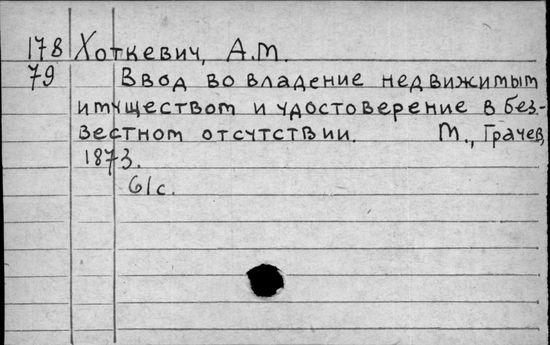 178 Хоткевич, А.М.
79 Ввод во владение недвижимым
имуществом и удостоверение в без-
вестном отсутствии. М., Грачев,
1873.
61с.